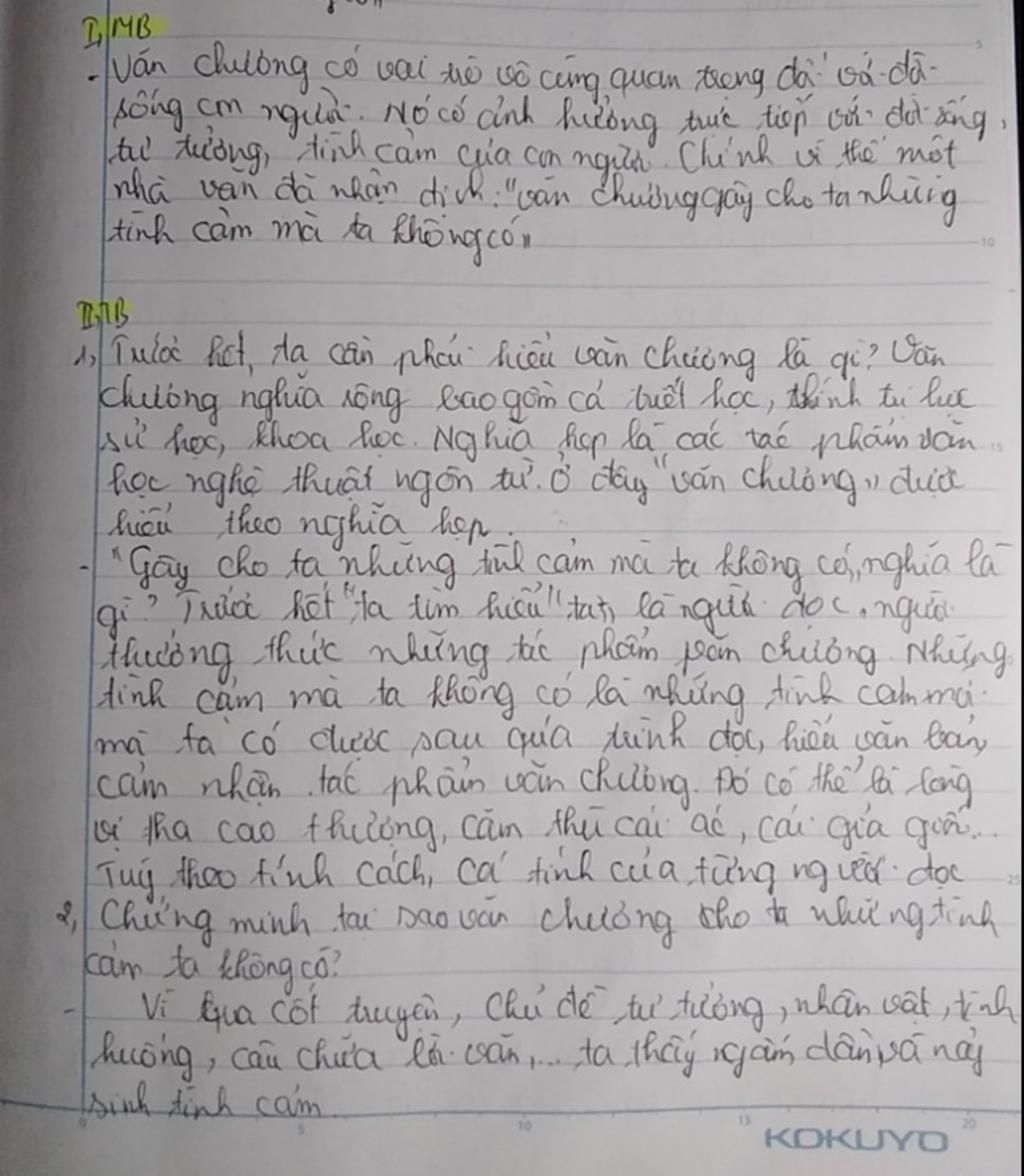 I, MB
- Văn chương có vai trò vô cùng quan trọng đối với đời
sống cm người. Nó có ảnh hưởng trực tiếp với đời sống,
tư tưởng, tình cảm của con người. Chính vì thế một
nhà văn đã nhận định: "văn chương gây cho ta những
tình cảm mà ta không có"
II, TB
1, Trước hết, ta cần phải hiểu văn chương là gì? Văn
chương nghĩa rộng bao gồm cả triết học, chính trị học
sử học, khoa học. Nghĩa hẹp là các tác phẩm văn
học nghệ thuật ngôn từ. Ở đây "văn chương" được
hiểu theo nghĩa hẹp.
- "Gây cho ta những tình cảm mà ta không có" nghĩa là
gì? Trước hết "ta tìm hiểu" "ta" là người đọc, người
thưởng thức những tác phẩm văn chương. Những
tình cảm mà ta không có là những tình cảm mới
mà ta có được sau quá trình đọc, hiểu văn bản,
cảm nhận tác phẩm văn chương. Đó có thể là lòng
vị tha cao thượng, căm thù cái ác, cái giả dối...
Tuỳ theo tính cách, cá tính của từng người đọc
2, Chứng minh tại sao văn chương cho ta những tình
cảm ta không có?
- Vì qua cốt truyện, chủ đề tư tưởng, nhân vật, tình
huống, câu chữa lời văn,... ta thấy ngấm dần và nảy
sinh tình cảm
5
10
25
0 5 10 15 20
KOKUYO